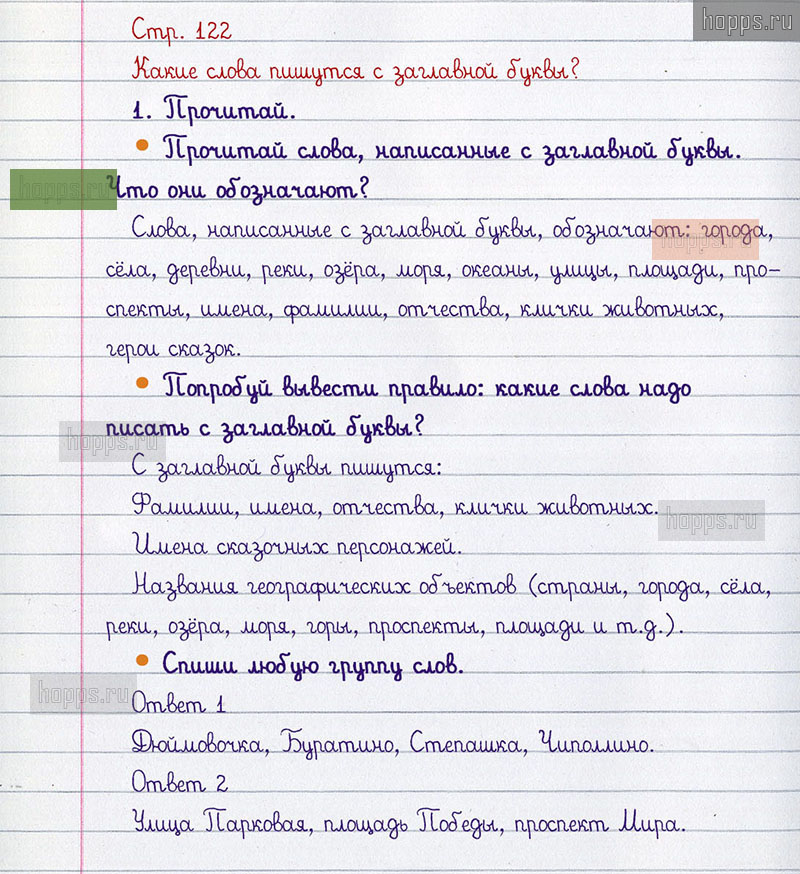 hopps.ru
Стр. 122
Какие слова пишутся с заглавной буквы?
1. Прочитай.
• Прочитай слова, написанные с заглавной буквы.
hopps.ru
Что они обозначают?
Слова, написанные с заглавной буквы, обозначают: города,
hopps.ru
сёла, деревни, реки, озёра, моря, океаны, улицы, площади, про-
спекты, имена, фамилии, отчества, клички животных,
герои сказок.
• Попробуй вывести правило: какие слова надо
писать с заглавной буквы?
hopps.ru
С заглавной буквы пишутся:
Фамилии, имена, отчества, клички животных.
hopps.ru
Имена сказочных персонажей.
Названия географических объектов (страны, города, сёла,
реки, озёра, моря, горы, проспекты, площади и т.д.).
• Спиши любую группу слов.
hopps.ru
Ответ 1
Дюймовочка, Буратино, Степашка, Чиполлино.
Ответ 2
Улица Парковая, площадь Победы, проспект Мира.